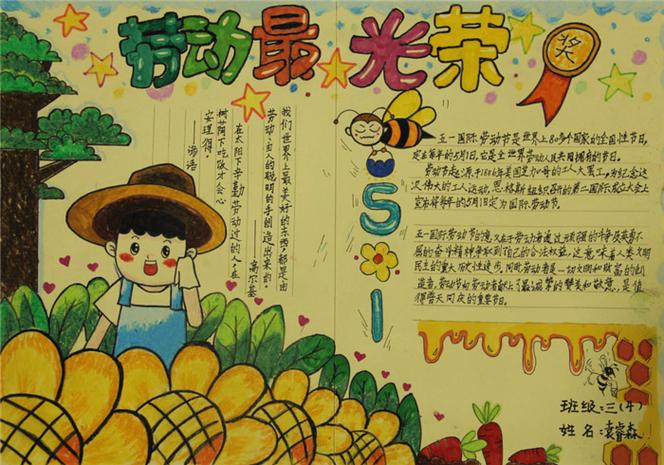 劳动最光荣
奖
我们世界上最美好的东西,都是由
劳动、由人的聪明的手创造出来的。
——高尔基
在太阳下辛勤劳动过的人,在
树荫下吃饭才会心
安理得。
——谚语
5
1
五一国际劳动节是世界上80多个国家的全国性节日。
定在每年的5月1日。它是全世界劳动人民共同拥有的节日。
劳动节起源于1886年美国芝加哥的工人大罢工,为纪念这
次伟大的工人运动,恩格斯组织召开的第二国际成立大会上
宣布将每年的5月1日定为国际劳动节。
五一国际劳动节的意义在于劳动者通过
不屈的奋斗精神争取到了自己的合法权益,这意味着人类文明
民主的重大历史性进步,同时劳动者是一切文明和财富的创
造者,劳动节给劳动者献上了最诚挚的赞美和敬意,是值
得普天同庆的重要节日。
班级:三(4)
姓名:袁睿森